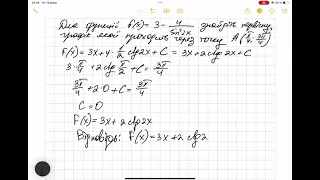 Для функції f(x) = 3 - 4/sin²2x знайдіть первісну,
графік якої проходить через точку A(π/4; 3π/4)
F(x) = 3x + 4 · 1/2 ctg2x + C = 3x + 2ctg2x + C
3 · π/4 + 2ctg π/2 + C = 3π/4
3π/4 + 2·0 + C = 3π/4
C = 0
F(x) = 3x + 2ctg2x
Відповідь: F(x) = 3x + 2ctg2